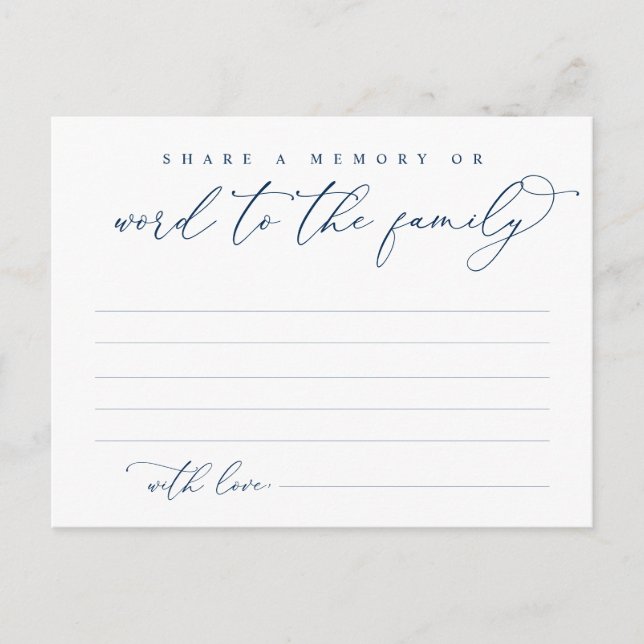 SHARE A MEMORY OR
word to the family
with love,